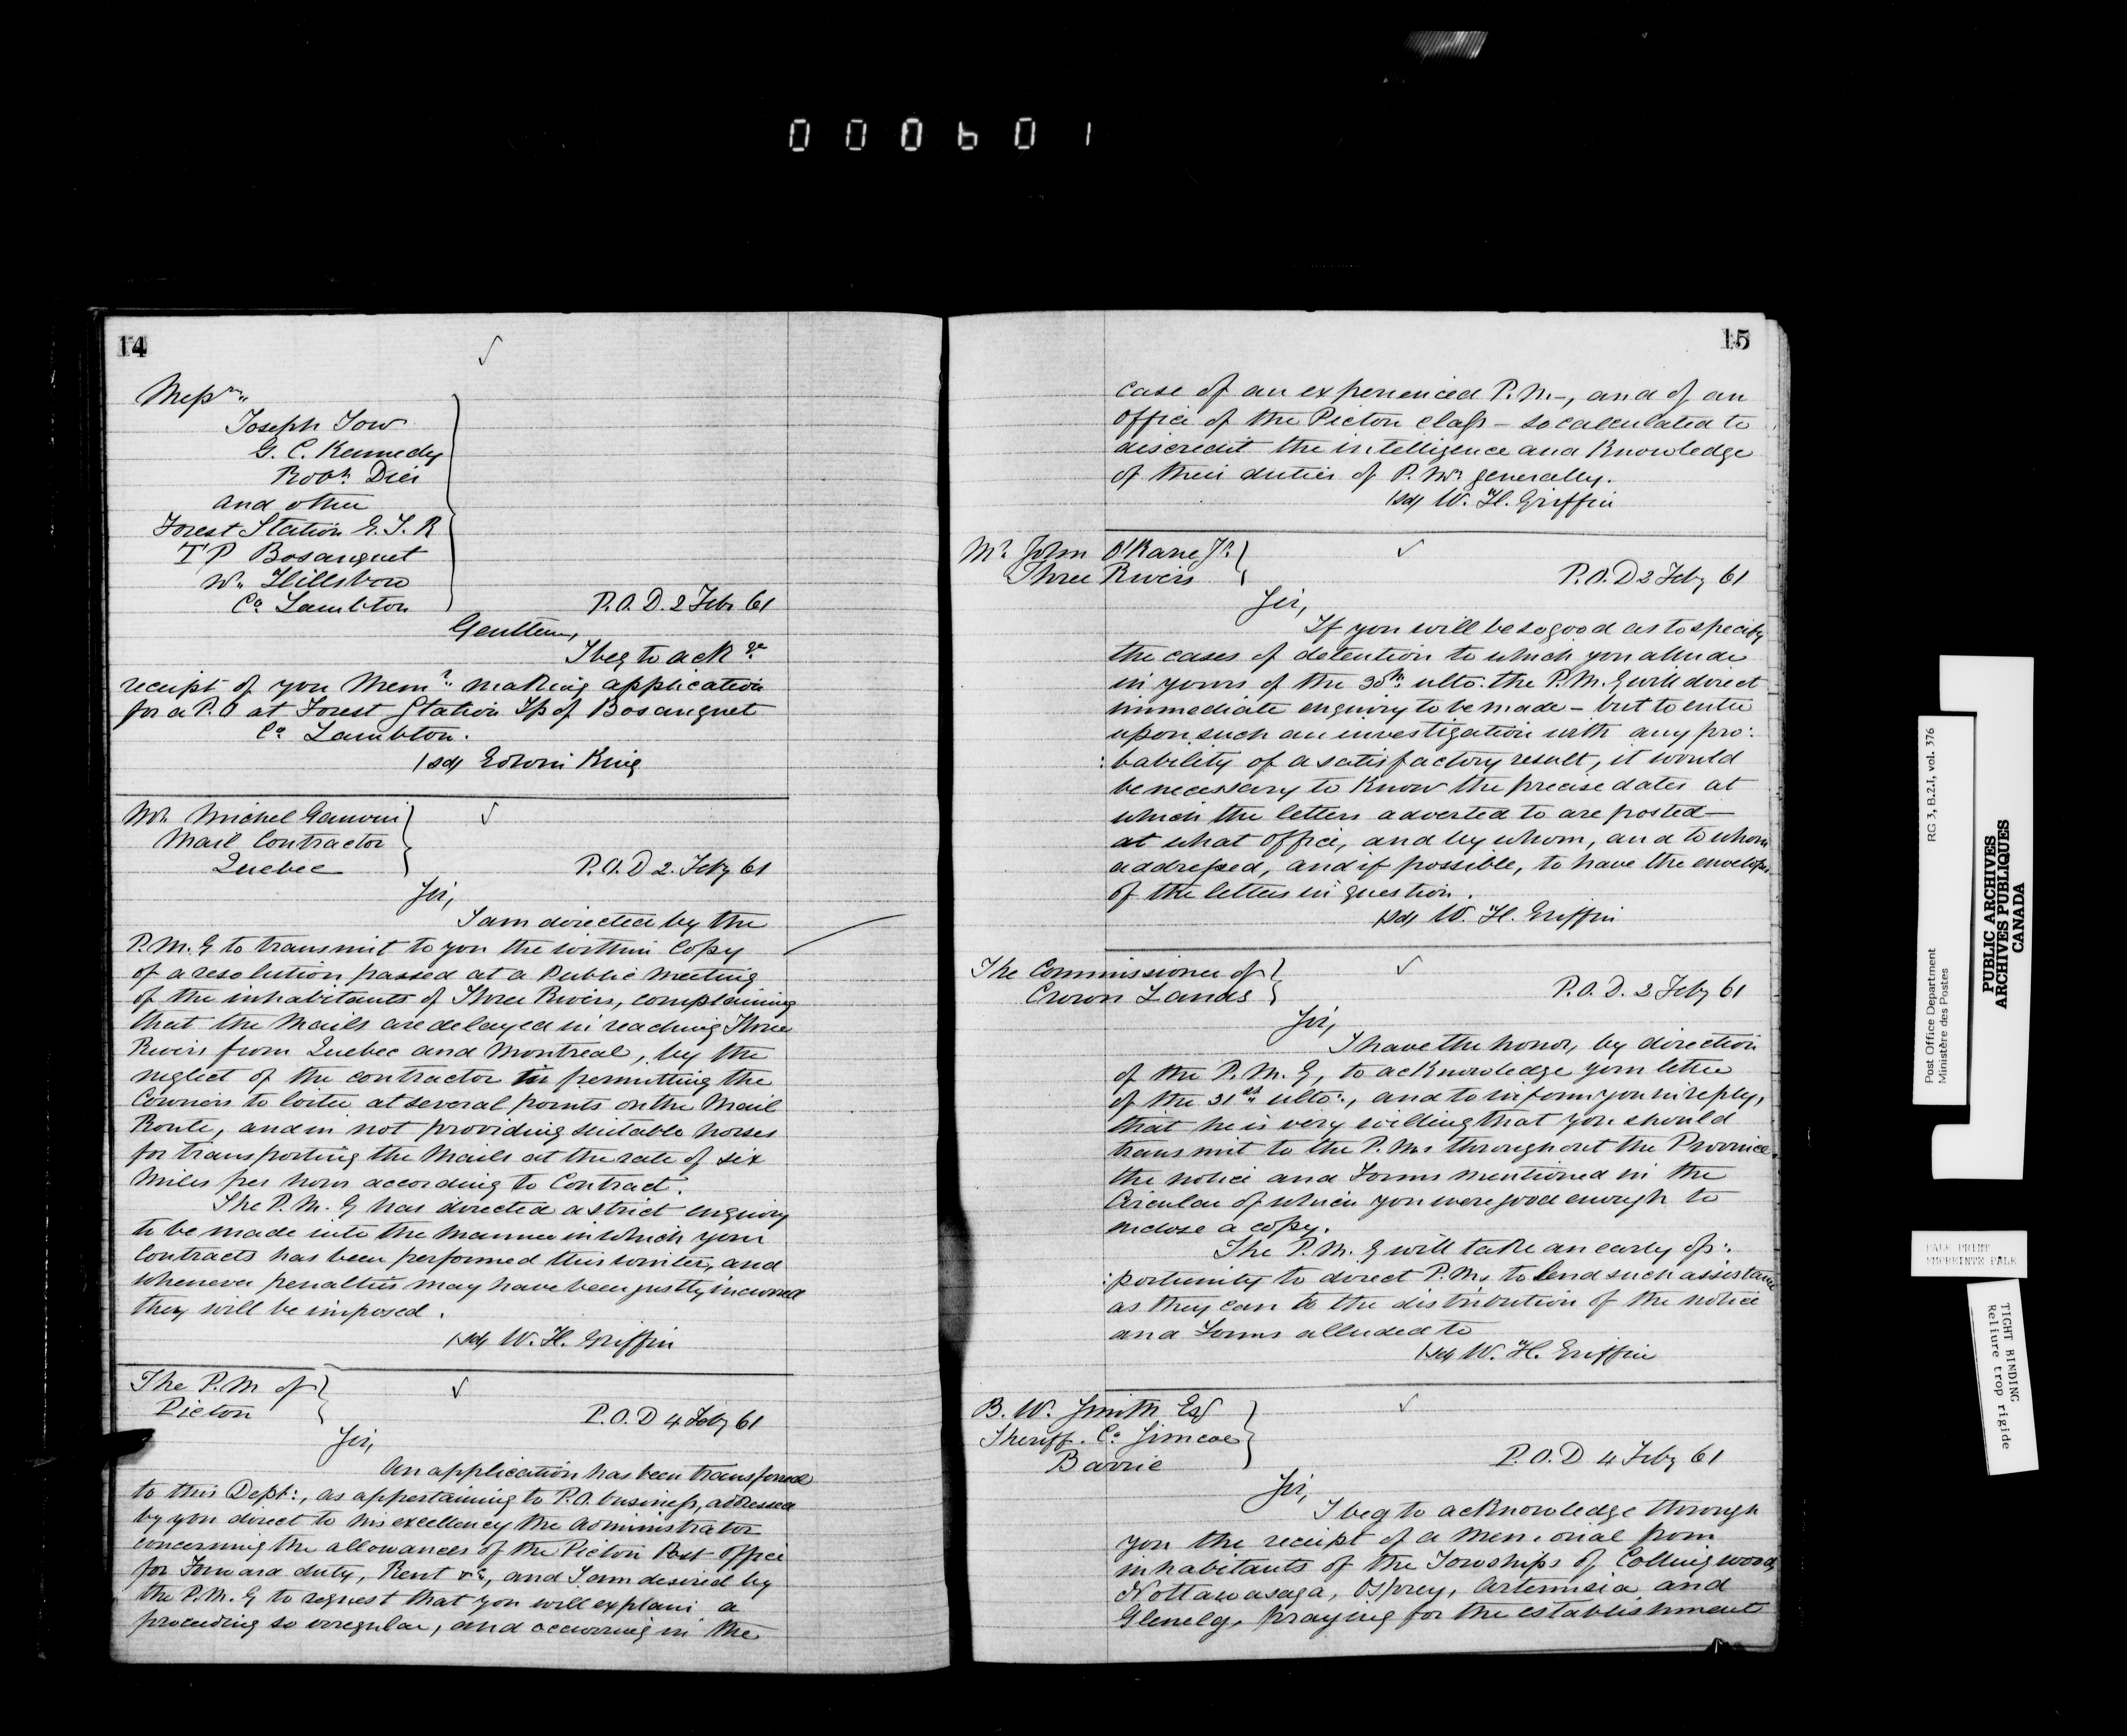 000601
14
Messrs
Joseph Tow
G. C. Kennedy
Robt. Dier
and other
Forest Station G. T. R
T P Bosanquet
Wn. Hillsboro
Co Lambton
P.O.D. 2 Feb 61
Gentlem,
I beg to ackge
receipt of you Meml. making application
for a P.O at Forest Station Tp of Bosanquet
Co Lambton.
/sd/ Edwin King
Mr. Michel Gauvin
Mail Contractor
Quebec
P.O.D 2. Feby 61
Sir,
I am directed by the
P.M.G to transmit to you the within Copy
of a resolution passed at a Public Meeting
of the inhabitants of Three Rivers, complaining
that the Mails are delayed in reaching Three
Rivers from Quebec and Montreal, by the
neglect of the contractor in permitting the
Couriers to loiter at several points on the Mail
Route, and in not providing suitable horses
for transporting the Mails at the rate of six
Miles per hour according to Contract.
The P.M.G has directed a strict enquiry
to be made into the manner in which your
Contracts has been performed this winter, and
whenever penalties may have been justly incurred
they will be imposed.
/sd/ W. H. Griffin
The P.M of
Picton
P.O.D 4 Feby 61
Sir,
An application has been transferred
to this Dept:, as appertaining to P.O. business, addressed
by you direct to his excellency the Administrator
concerning the allowances of the Picton Post Office
for Forward duty, Rent &c, and I am desired by
the P.M.G to request that you will explain a
proceeding so irregular, and occurring in the
15
case of an experienced P.M-, and of an
Office of the Picton class - so calculated to
discredit the intelligence and Knowledge
of their duties of P.Ms generally.
/sd/ W. H. Griffin
Mr John O'Kane Jr
Three Rivers
P.O.D 2 Feby 61
Sir,
If you will be so good as to specify
the cases of detention to which you allude
in yours of the 30th ulto: the P.M.G will direct
immediate enquiry to be made - but to enter
upon such an investigation with any pro:
:bability of a satisfactory result, it would
be necessary to Know the precise dates at
which the letters adverted to are posted -
at what Office, and by whom, and to whom
addressed, and if possible, to have the envelopes
of the letters in question.
/sd/ W. H. Griffin
The Commissioner of
Crown Lands
P.O.D. 2 Feby 61
Sir,
I have the honor, by direction
of the P.M.G, to acKnowledge your letter
of the 31st ulto:, and to inform you in reply,
that he is very willing that you should
transmit to the P.Ms throughout the Province
the notice and Forms mentioned in the
Circular of which you were good enough to
inclose a copy.
The P.M.G will take an early op:
:portunity to direct P.Ms to lend such assistance
as they can to the distribution of the notice
and Forms alluded to
/sd/ W. H. Griffin
B. W. Smith Esq
Sheriff. Co Simcoe
Barrie
P.O.D 4 Feby 61
Sir,
I beg to acKnowledge through
you the receipt of a Memorial from
inhabitants of the Towships of Collingwood,
Nottawasaga, Osprey, Artemisia and
Glenelg, praying for the establishment
Post Office Department
Ministère des Postes
RG 3, B.2.1, vol. 376
PUBLIC ARCHIVES
ARCHIVES PUBLIQUES
CANADA
PALE PRINT
EMPREINTE PALE
TIGHT BINDING
Reliure trop rigide